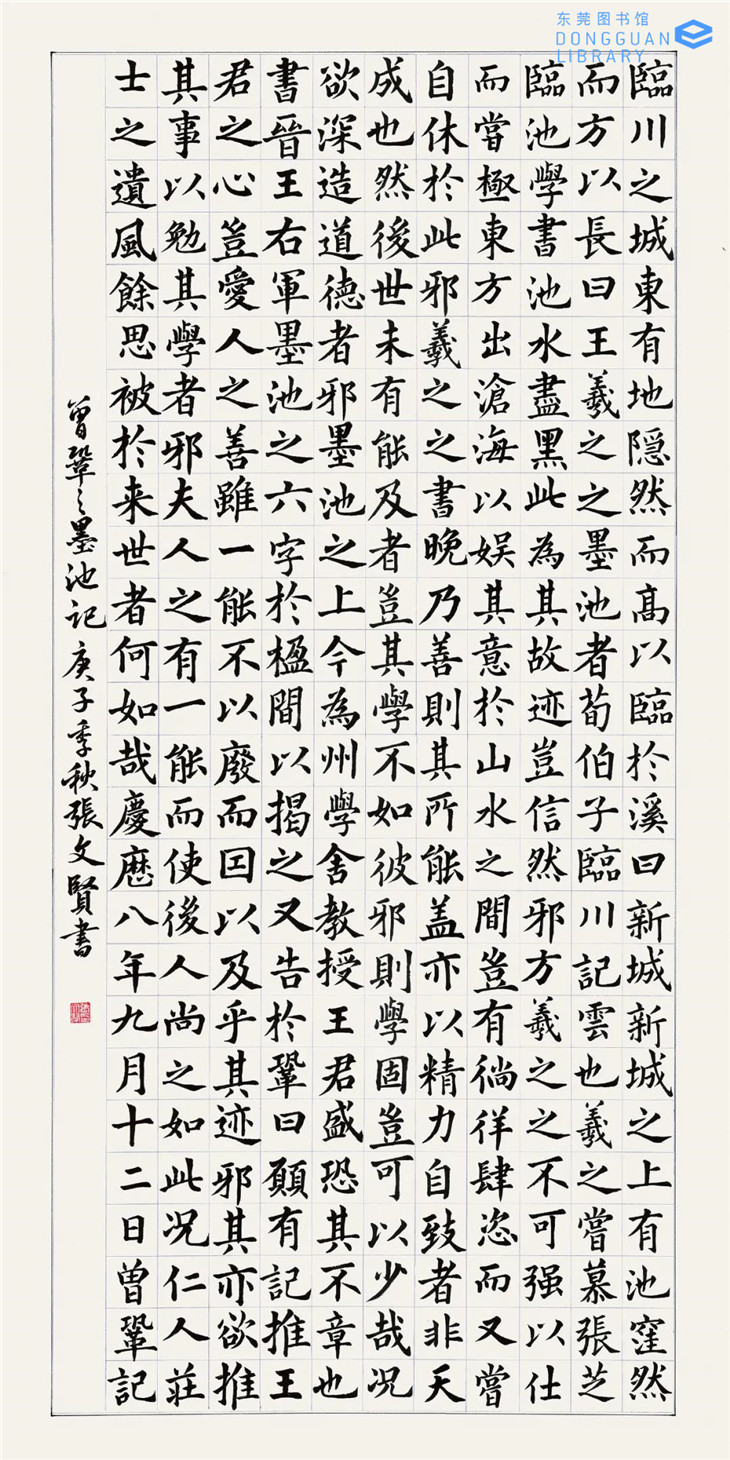 东莞图书馆
DONGGUAN
LIBRARY
臨川之城東有地隠然而髙以臨於溪曰新城新城之上有池窪然
而方以長曰王羲之之墨池者荀伯子臨川記雲也羲之嘗慕張芝
臨池學書池水盡黑此為其故迹豈信然邪方羲之之不可强以仕
而嘗極東方出滄海以娱其意於山水之間豈有徜徉肆恣而又嘗
自休於此邪羲之之書晚乃善則其所能盖亦以精力自致者非天
成也然後世未有能及者豈其學不如彼邪則學固豈可以少哉况
欲深造道德者邪墨池之上今為州學舍教授王君盛恐其不章也
書晉王右軍墨池之六字於楹間以揭之又告於鞏曰願有記推王
君之心豈愛人之善雖一能不以廢而囙以及乎其迹邪其亦欲推
其事以勉其學者邪夫人之有一能而使後人尚之如此况仁人莊
士之遺風餘思被於来世者何如哉慶歴八年九月十二日曾鞏記
曾鞏之墨池記 庚子季秋張文賢書